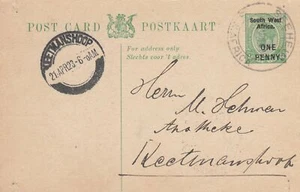 POST CARD POSTKAART
For address only
Slechts voor 't adres
South West
Africa.
ONE
PENNY.
KEETMANSHOOP
21 APR 23 - 6
AM
Herrn
M. Hehnen
Apotheke
Keetmanshoop